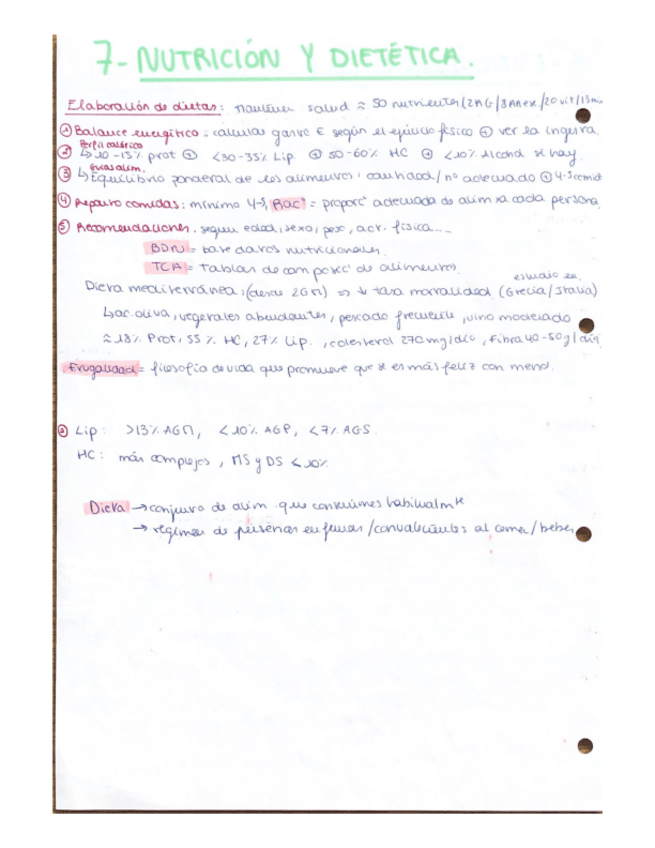 7- NUTRICIÓN Y DIETÉTICA.
Elaboración de dietas: mantener salud ≈ 50 nutrientes (2AG/8AAes./20 vit/13min
① Balance energético: calcular gasto E según el ejercicio físico ⊕ ver la ingesta.
Perfil calórico
② ↳ 10-15% prot ⊕ <30-35% Lip. ⊕ 50-60% HC ⊕ <10% Alcohol si hay.
Guías alim.
③ ↳ Equilibrio ponderal de los alimentos: cantidad/nº adecuado ⊕ 4-5 comid
④ Reparto comidas: mínimo 4-5, Rac° = proporc° adecuada de alim xa cada persona.
⑤ Recomendaciones. según edad, sexo, peso, act. física...
BDN = base datos nutricionales.
TCA = Tablas de composic° de alimentos.
estudio en
Dieta mediterránea: (desde 2GM) => ↓ tasa mortalidad (Grecia/Italia)
↳ ac. oliva, vegetales abundantes, pescado frecuente, vino moderado
≈ 18% Prot, 55% HC, 27% Lip., colesterol 270 mg/día, Fibra 40-50g/día
Frugalidad = filosofía de vida que promueve que se es más feliz con menos.
② Lip: >13% AGM, <10% AGP, <7% AGS.
HC: más complejos, MS y DS <10%
Dieta → conjunto de alim. que consumimos habitualmte
→ régimen de personas enfermas/convalecientes al comer/beber